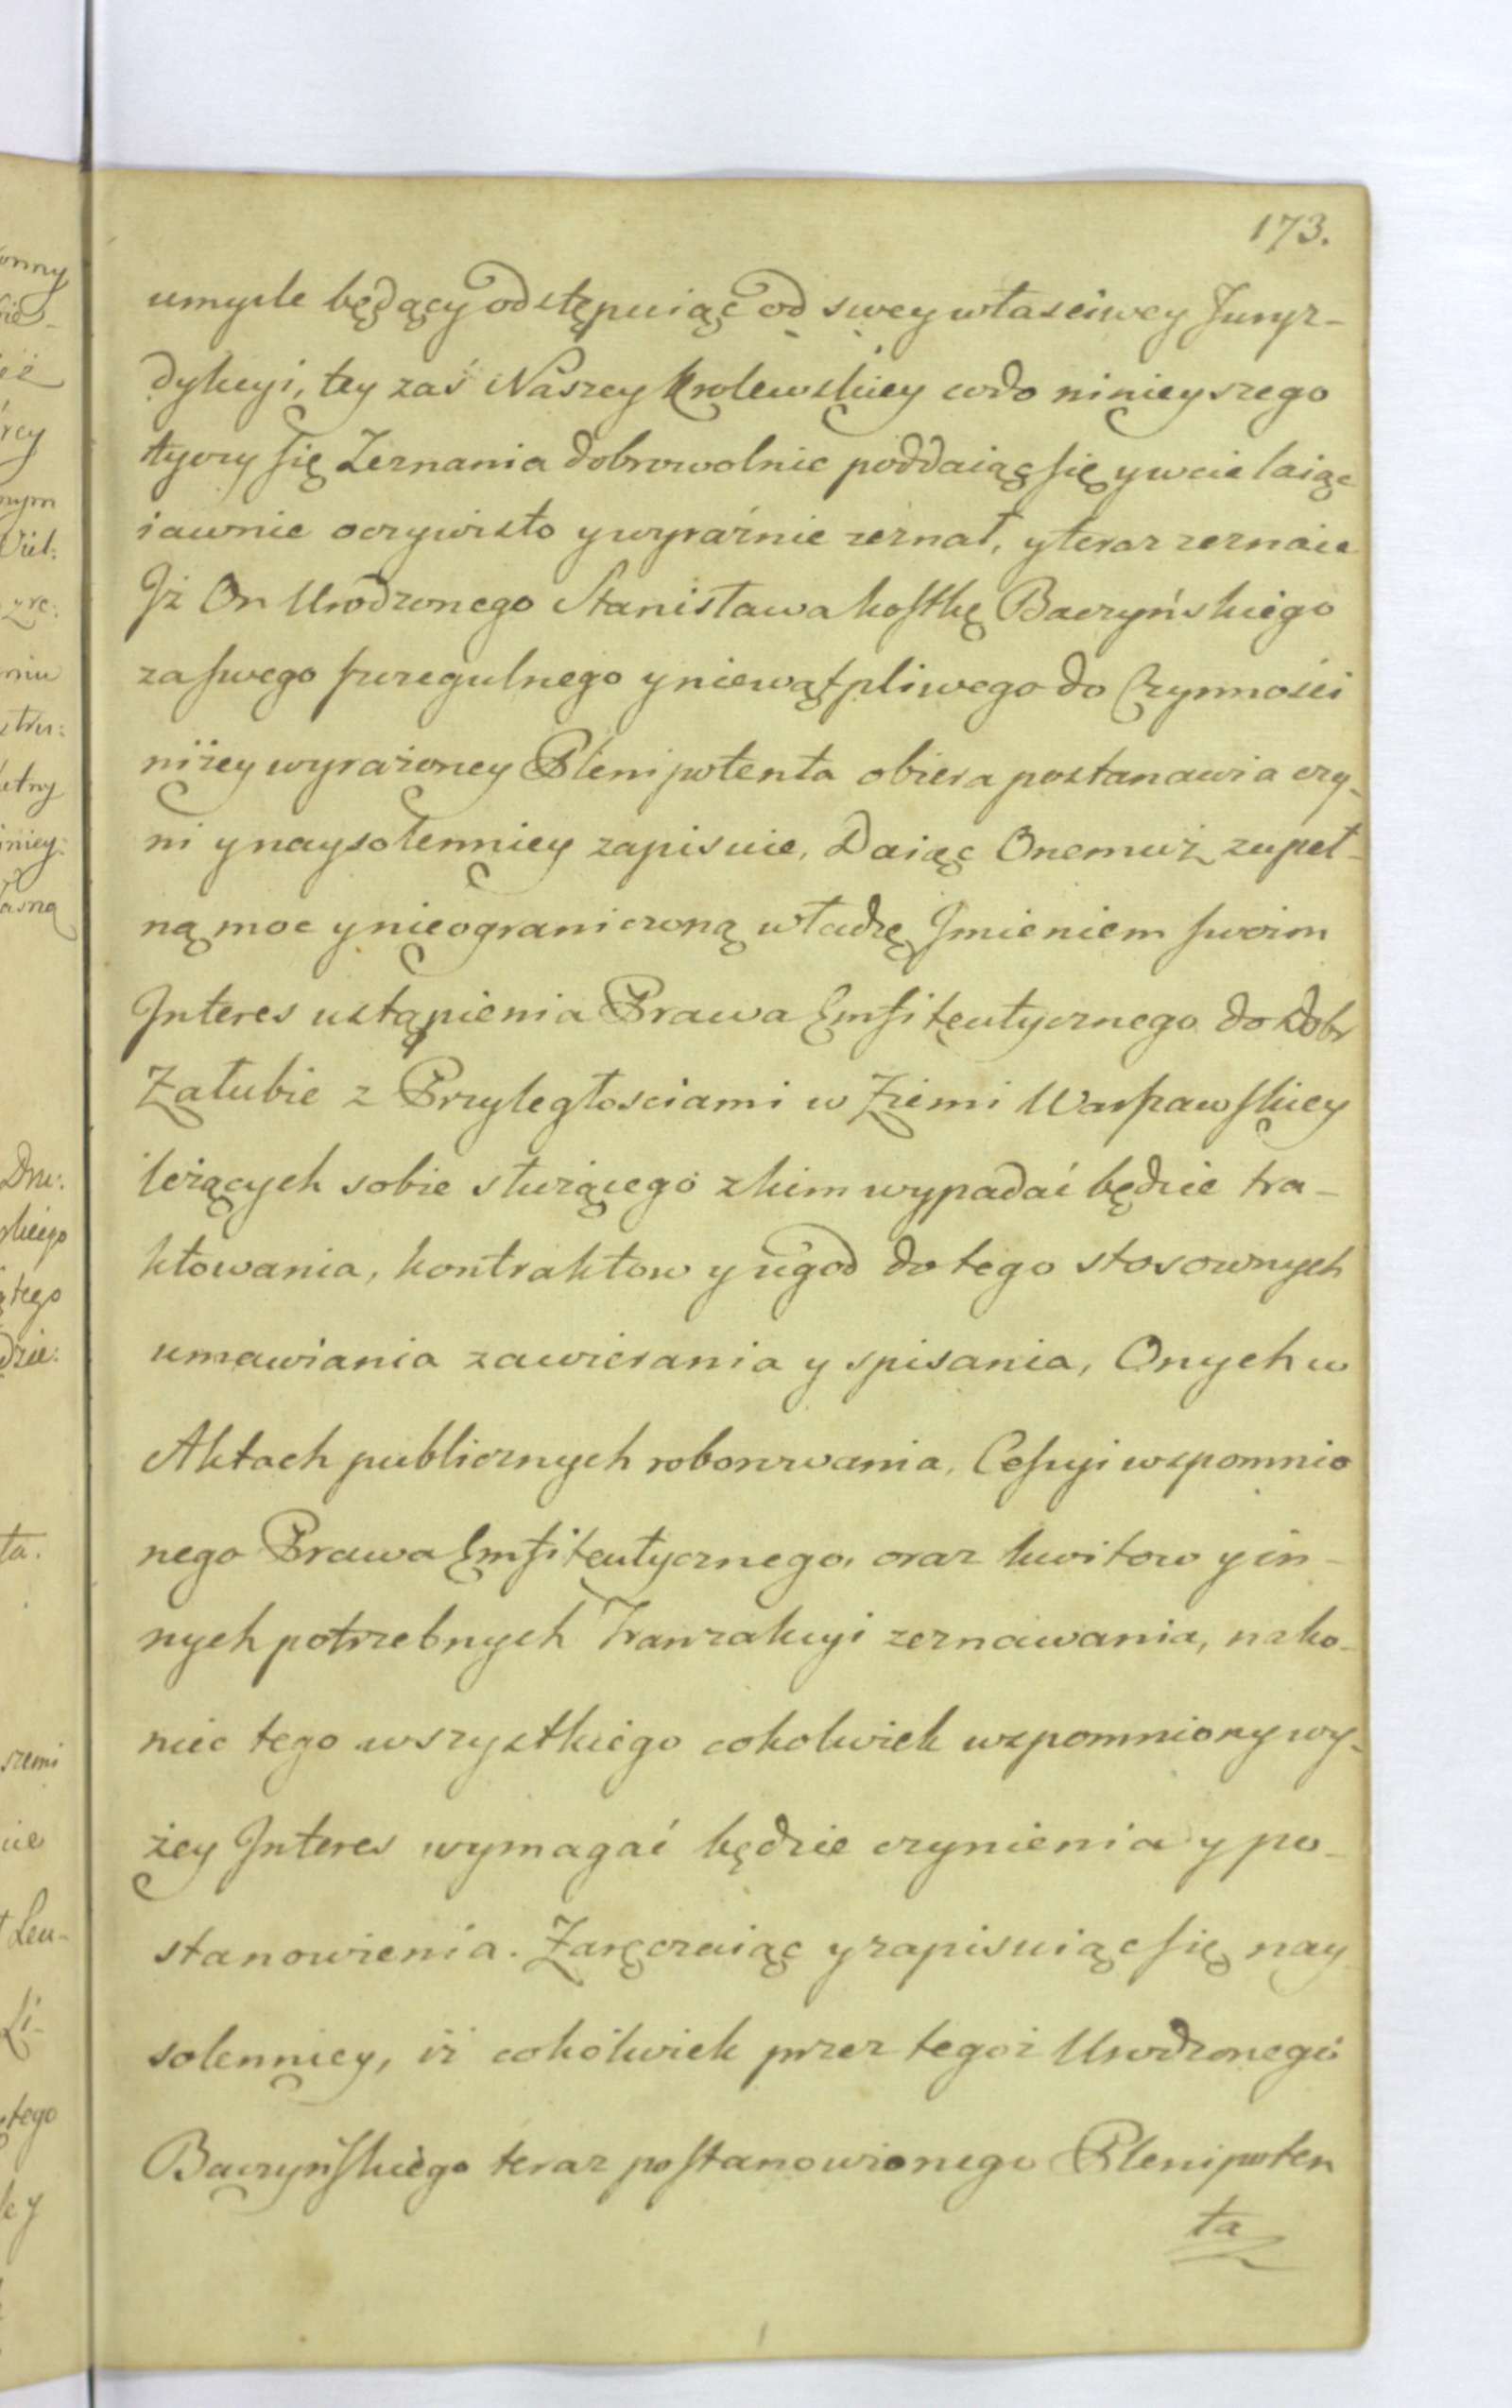 173.
umysle będący odstępuiąc od swey własciwey Juryz-
dykcyi, tey zaś Naszey Krolewskiey codo ninieyszego
tyczy się Zeznania dobrowolnie poddaiąc się y wcielaiąc
iawnie oczywisto y wyraźnie zeznał, y teraz zeznaie
Jż On Urodzonego Stanisława Kostkę Baczyńskiego
za swego szczegulnego y niewątpliwego do Czynności
niżey wyrażoney Plenipotenta obiera postanawia czy-
ni y naysolenniey zapisuie, Daiąc Onemuż zupeł-
ną moc y nieograniczoną władzę Jmieniem swoim
Jnteres ustąpienia Prawa Emfiteutycznego do Dobr
Załubie z Przyległosciami w Ziemi Warszawskiey
leżących sobie służącego z kim wypadać będzie tra-
ktowania, kontraktow y ugod do tego stosownych
umawiania zawierania y spisania, Onych w
Aktach publicznych roborowania, Cessyi wspomnio
nego Prawa Emfiteutycznego, oraz kwitow y in-
nych potrzebnych Tranzakcyi zeznawania, nako-
niec tego wszystkiego cokolwiek wspomniony wy-
żey Jnteres wymagać będzie czynienia y po-
stanowienia. Zaręczaiąc y zapisuiąc się nay
solenniey, iż cokolwiek przez tegoż Urodzonego
Baczyńskiego teraz postanowionego Plenipoten
ta